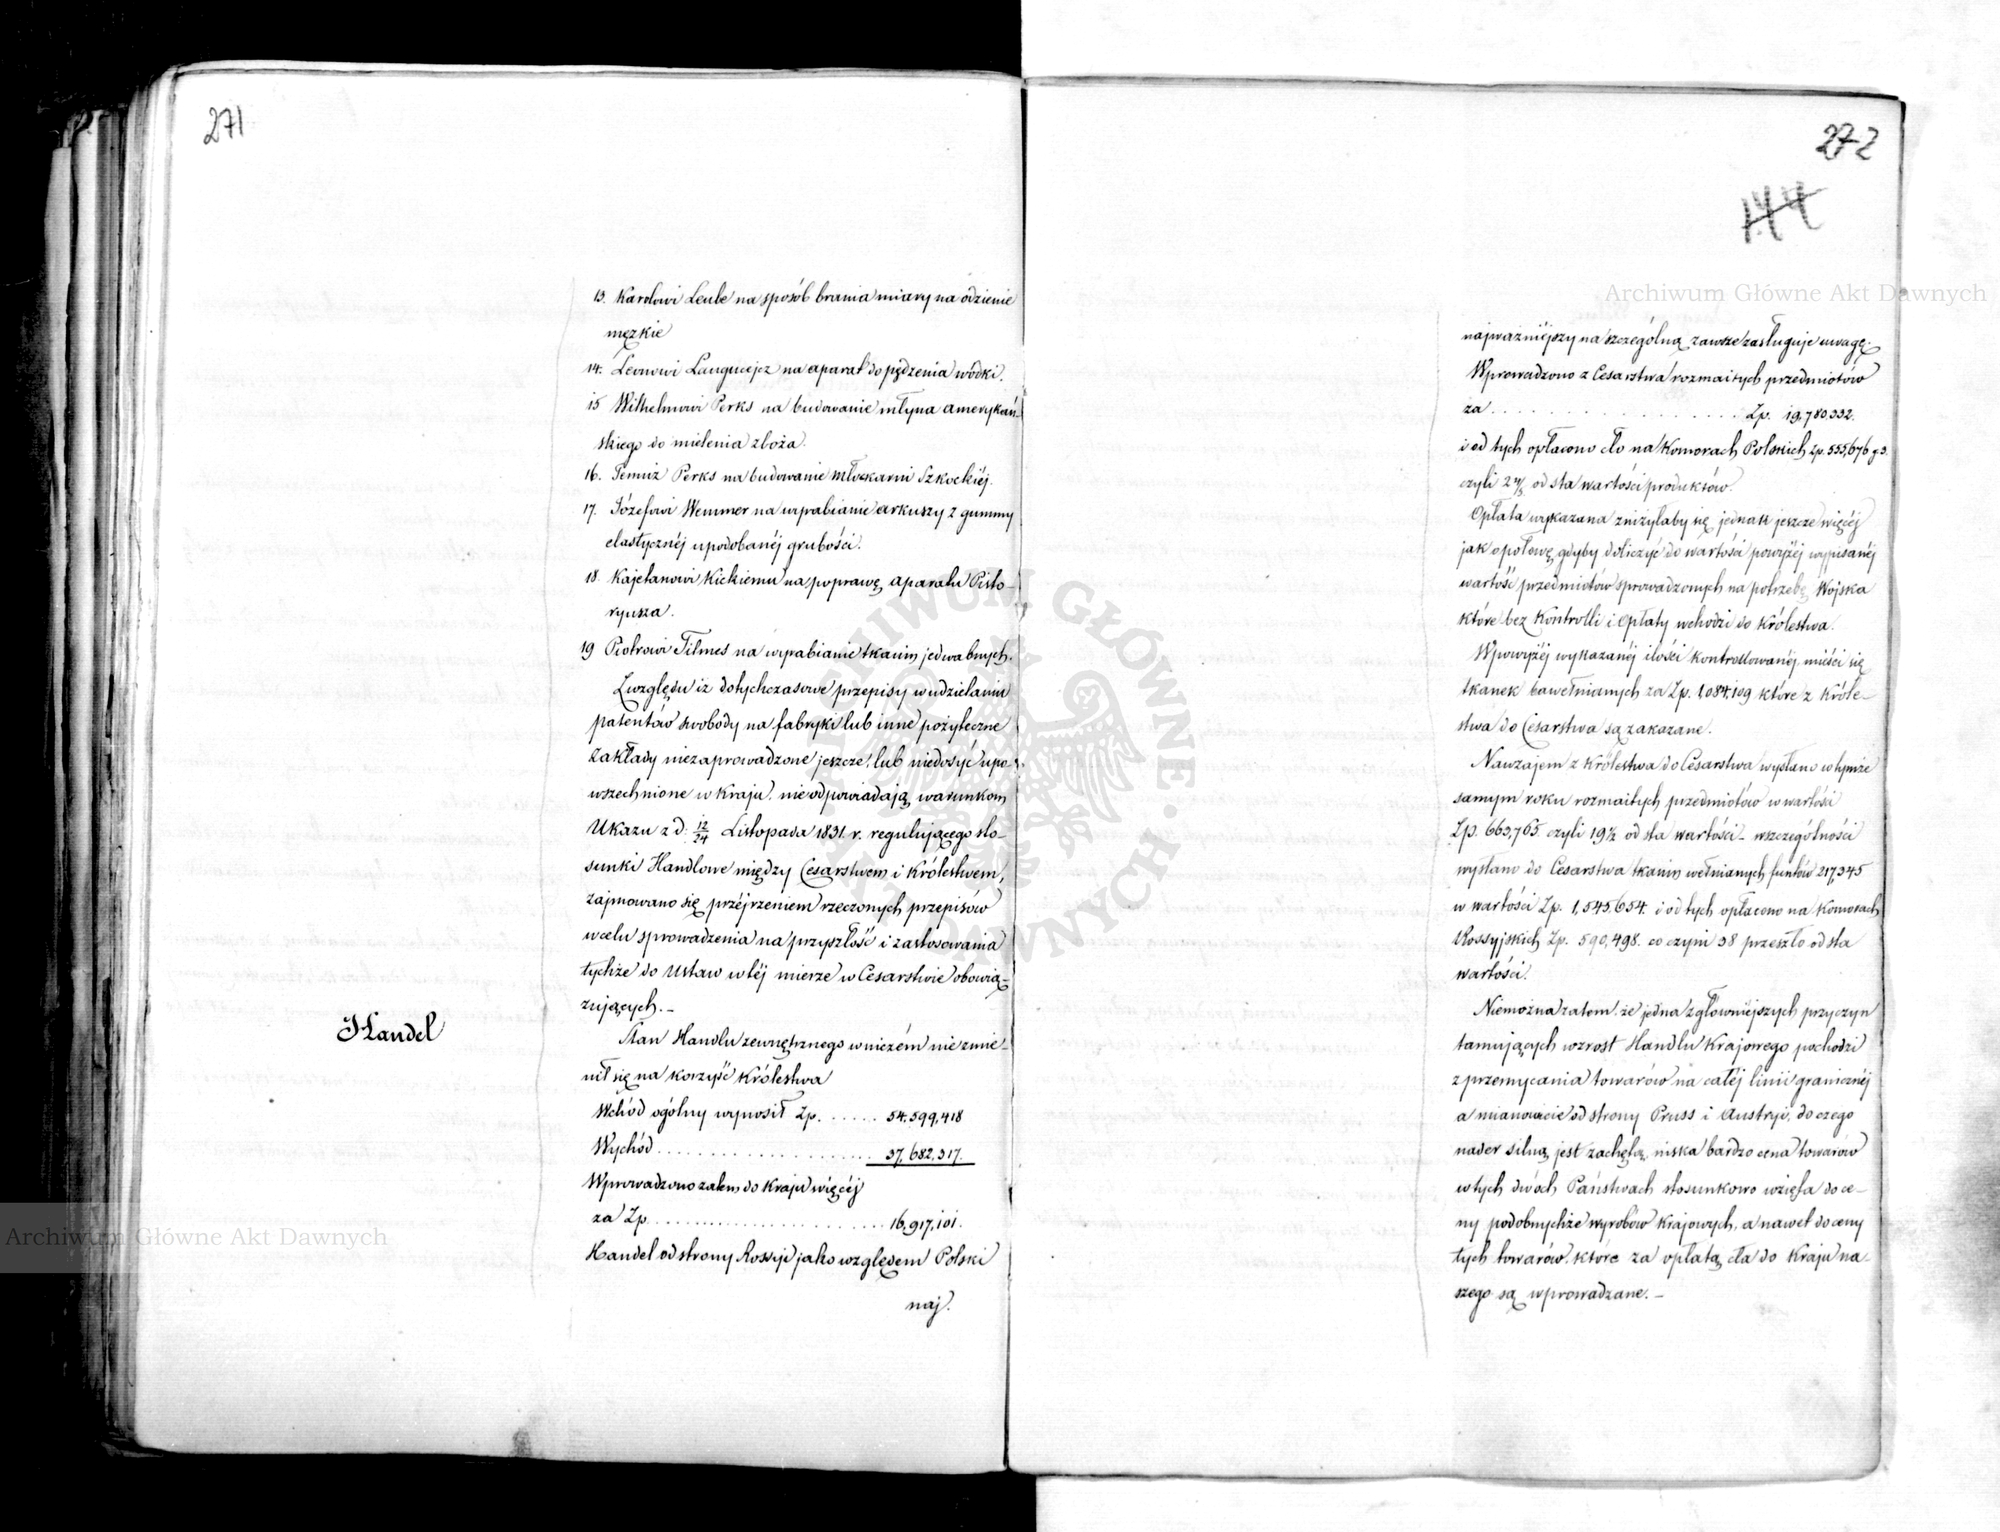 271
13. Karolowi Leube na sposób brania miary na odzienie
męzkie
14. Leonowi na aparat do pędzenia wódki.
15 Wilhelmowi Perks na budowanie młyna amerykań
skiego do mielenia zboża.
16. Temuż Perks na budowanie Młockarni Szkockiéj.
17. Józefowi Wemmer na wyrabianie arkuszy z gummy
elastycznéj upodobanéj grubości.
18. Kajetanowi Kickiemu na poprawę aparatu Pisto-
ryusza.
19 Piotrowi Tilmes na wyrabianie tkanin jedwabnych.
Zwzględu iż dotychczasowe przepisy w udzielaniu
patentów swobody na fabryki lub inne pożyteczne
Zakłady niezaprowadzone jeszcze, lub niedosyć upo
wszechnione w Kraju, nieodpowiadają warunkom
Ukazu z d. 12/24 Listopada 1831. r. regulującego sto-
sunki Handlowe między Cesarstwem i Królestwem,
zajmowano się przéjrzeniem rzeczonych przepisów
w celu sprowadzenia na przyszłość i zastosowania
tychże do Ustaw w téj mierze w Cesarstwie obowią-
zujących. -
Handel
Stan Handlu zewnętrznego w niczém nie zmie-
nił się na korzyść Królestwa
Wchód ogólny wynosił Zp. ...... 54,599,418
Wychód ..................... 37,682,317.
Wprowadzono zatem do Kraju więcéj
za Zp. ...................... 16,917,101.
Handel od strony Rossyi jako względem Polski
naj.
272
144
najważniéjszy na szczególną zawsze zasługuje uwagę.
Wprowadzono z Cesarstwa rozmaitych przedmiotów
za .................. Zp. 19,780,332.
i od tych opłacono cło na Komorach Polskich Zp. 555,676 g 3.
czyli 2 4/5 od sta wartości produktów.
Opłata wykazana zniżyłaby się jednak jeszcze więcéj
jak o połowę gdyby doliczyć do wartości powyżéj wypisanéj
wartość przedmiotów sprowadzonych na potrzebę Wojska
które bez Kontrolli i Opłaty wchodzi do Królestwa.
W powyżéj wykazanéj ilości kontrollowanéj mieści się
tkanek bawełnianych za Zp. 1,084,109 które z Króle-
stwa do Cesarstwa są zakazane.
Nawzajem z Królestwa do Cesarstwa wysłano w tymże
samym roku rozmaitych przedmiotów w wartości
Zp. 663,765 czyli 19½ od sta wartości - w szczególności
wysłano do Cesarstwa tkanin wełnianych funtów 217,345
w wartości Zp. 1,545,654. i od tych opłacono na Komorach
Rossyjskich Zp. 590,498. co czyni 38 przeszło od sta
wartości.
Niemożna zatem, że jedna z główniejszych przyczyn
tamujących wzrost Handlu Krajowego pochodzi
z przemycania towarów na całéj linii granicznéj
a mianowicie od strony Pruss i Austryi, do czego
nader silną jest zachętą, niska bardzo cena towarów
w tych dwóch Państwach stosunkowo wzięta do ce-
ny podobnychże wyrobów Krajowych, a nawet do ceny
tych towarów, które za opłatą cła do Kraju na-
szego są wprowadzane. -
Archiwum Główne Akt Dawnych
Archiwum Główne Akt Dawnych
ARCHIWUM GŁÓWNE AKT DAWNYCH